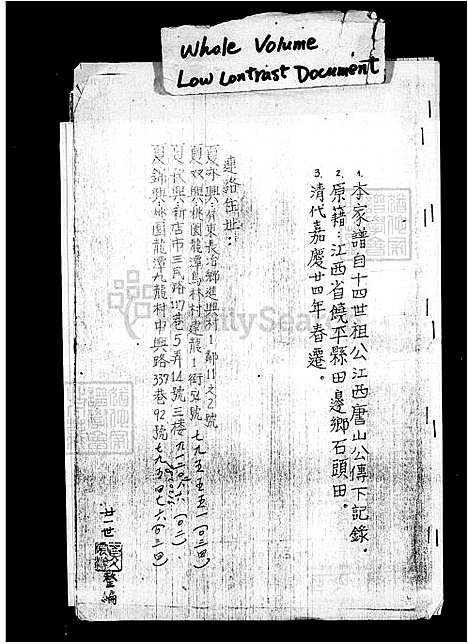 Whole Volume
Low Contrast Document
1. 本家譜自十四世祖公江西唐山公傳下記錄。
2. 原籍：江西省饒平縣田邊鄉石頭田。
3. 清代嘉慶廿四年春遷。
連絡住址：
夏永興：屏東長治鄉進興村1鄰11之2號
夏双興：桃園龍潭烏林村建龍1街54號 七九五五五一(〇三四)
夏代興：新店市三民路117巷5弄14號三樓
夏錦興：桃園龍潭九龍村中興路337巷92號 七九五四七六(〇三四)
廿一世
整編
FamilySearch